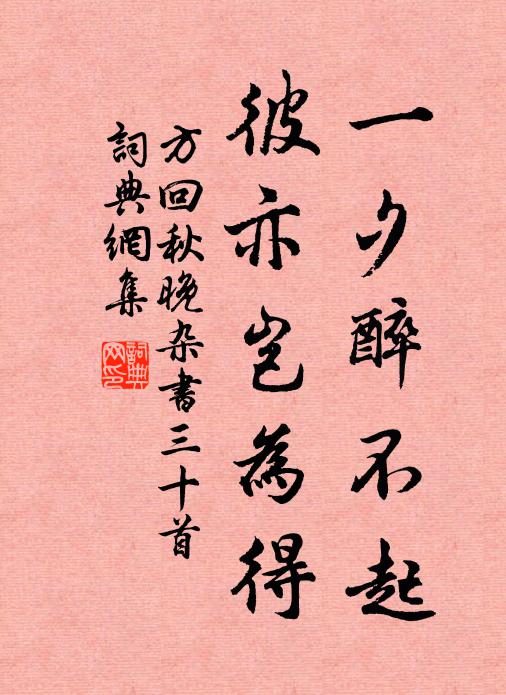 一夕醉不起
彼亦岂為得
方回秋晚杂書三十首
詞典網集
詞典
网印